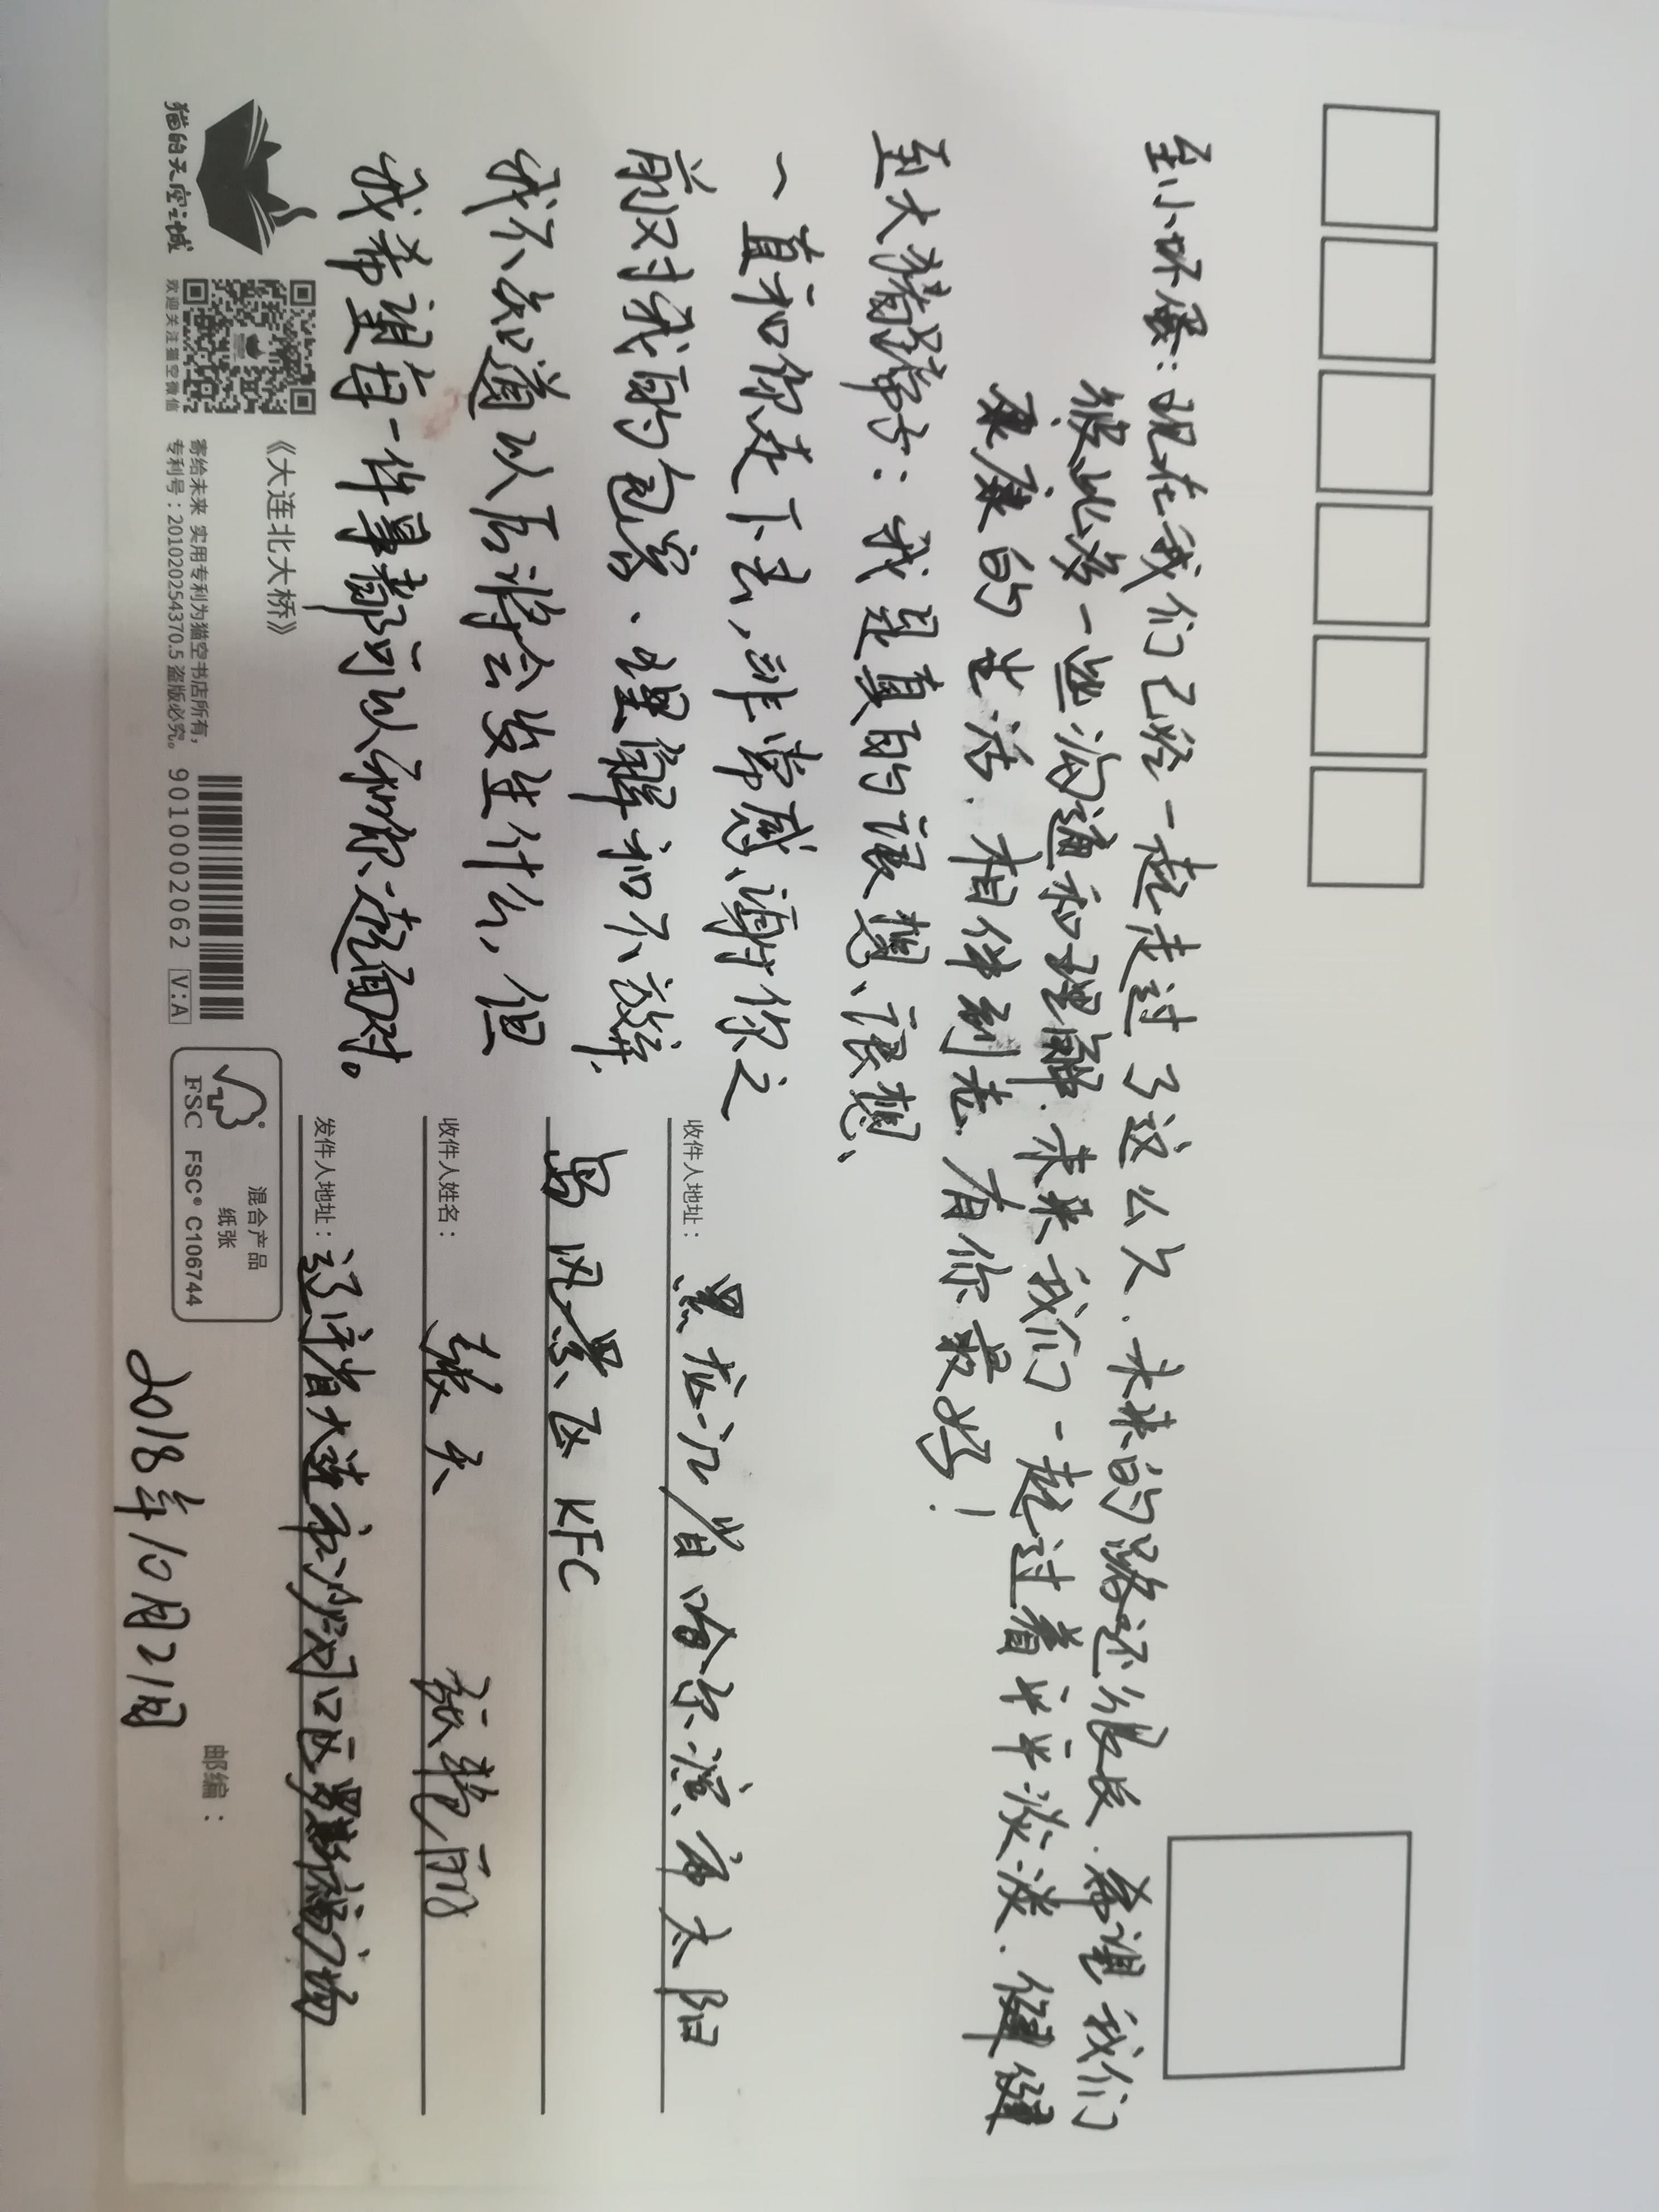 至小坏蛋：现在我们已经一起走过了这么久.未来的路还很长.希望我们
彼此多一些沟通和理解.未来我们一起过着平平淡淡.健健
康康的生活.相伴到老.有你最好！
至大猪蹄子：我是真的很想、很想、
一直和你走下去,非常感谢你之
前对我的包容.理解和不放弃,
我不知道以后将会发生什么,但
我希望每一件事都可以和你一起面对。
收件人地址：黑龙江省哈尔滨市太阳
岛风景区 KFC
收件人姓名：张天 张艳丽
发件人地址：辽宁省大连市沙河口区罗斯福广场
邮编：
2018年10月21日
猫的天空之城
欢迎关注猫空微信
《大连北大桥》
寄给未来 实用专利为猫空书店所有，
专利号：201020254370.5 盗版必究。
9010002062 V:A
混合产品
纸张
FSC FSC® C106744